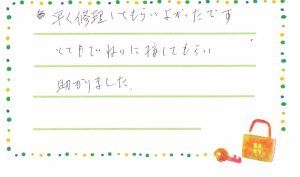 早く修理してもらいよかったです
とてもていねいに接してもらい
助かりました。